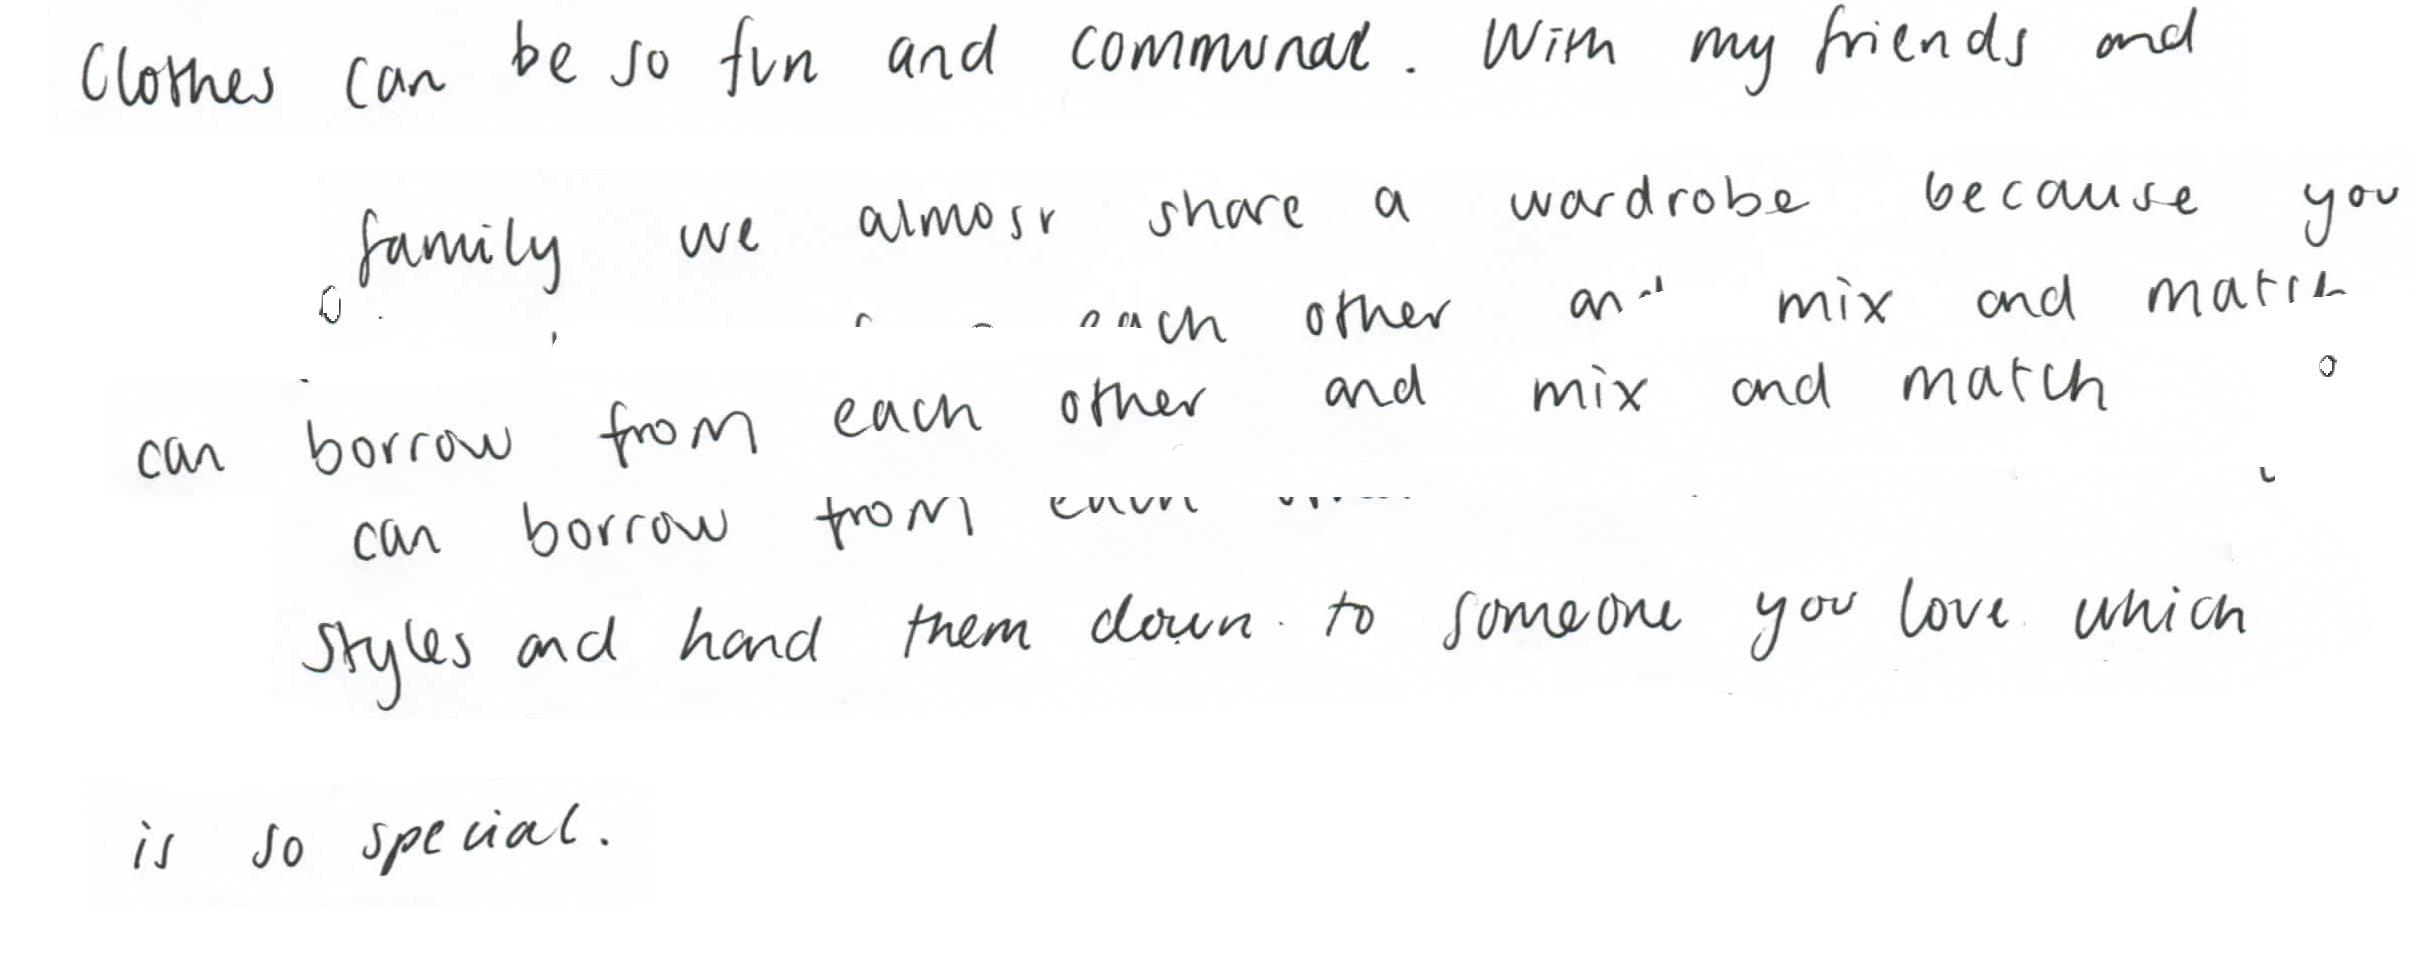 Clothes can be so fun and communal. With my friends and
family we almost share a wardrobe because you
each other and mix and match
can borrow from each other and mix and match
can borrow from each
styles and hand them down to someone you love which
is so special.